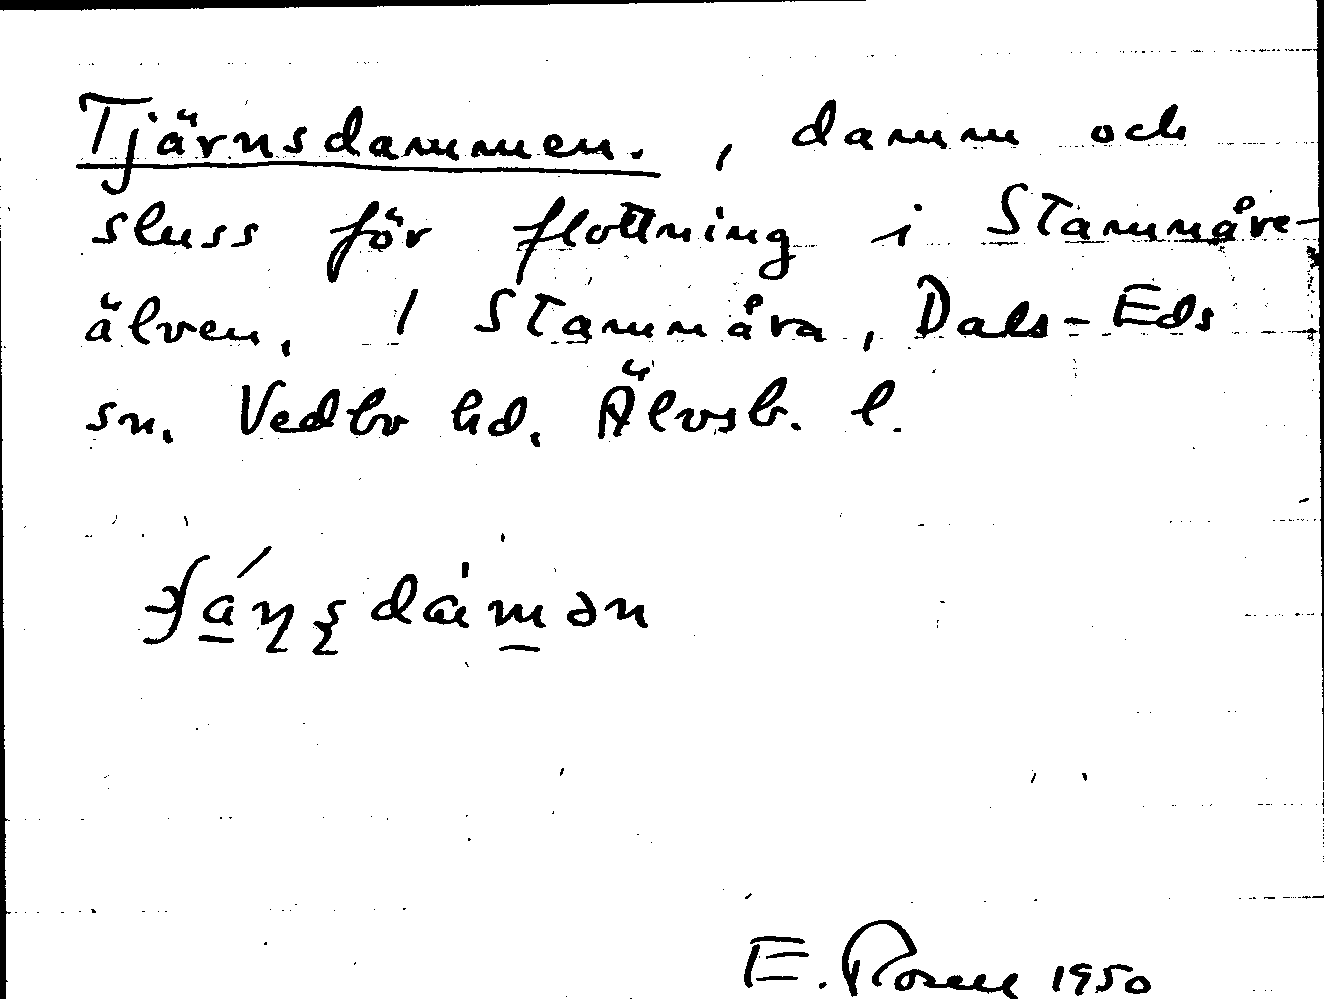 Tjärnsdammen. , damm och
sluss för flottning i Stammåre-
älven, / Stammåra, Dals-Eds
sn. Vedbo hd. Älvsb. l.
E. Rosell 1950